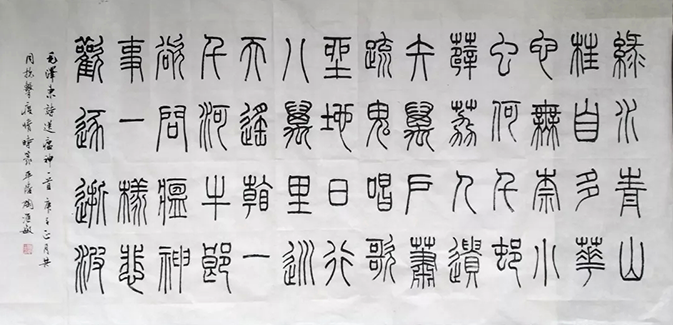 綠水青山
枉自多華
佗無奈小
虫何千邨
薜荔人遺
矢萬戶蕭
疏鬼唱歌
坐地日行
八萬里巡
天遙看一
千河牛郎
欲問瘟神
事一樣悲
歡逐逝波
毛澤東詩送瘟神一首 庚子正月共
同抗擊疫情時